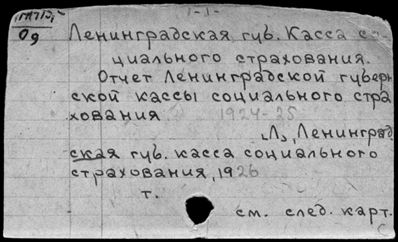 -1-
Од
Ленинградская губ. Касса со-
циального страхования.
Отчет Ленинградской губерн
ской кассы социального стра
хования 1924-25
„Л„ Ленинград
ская губ. касса социального
страхования, 1926
т.
см. след. карт.